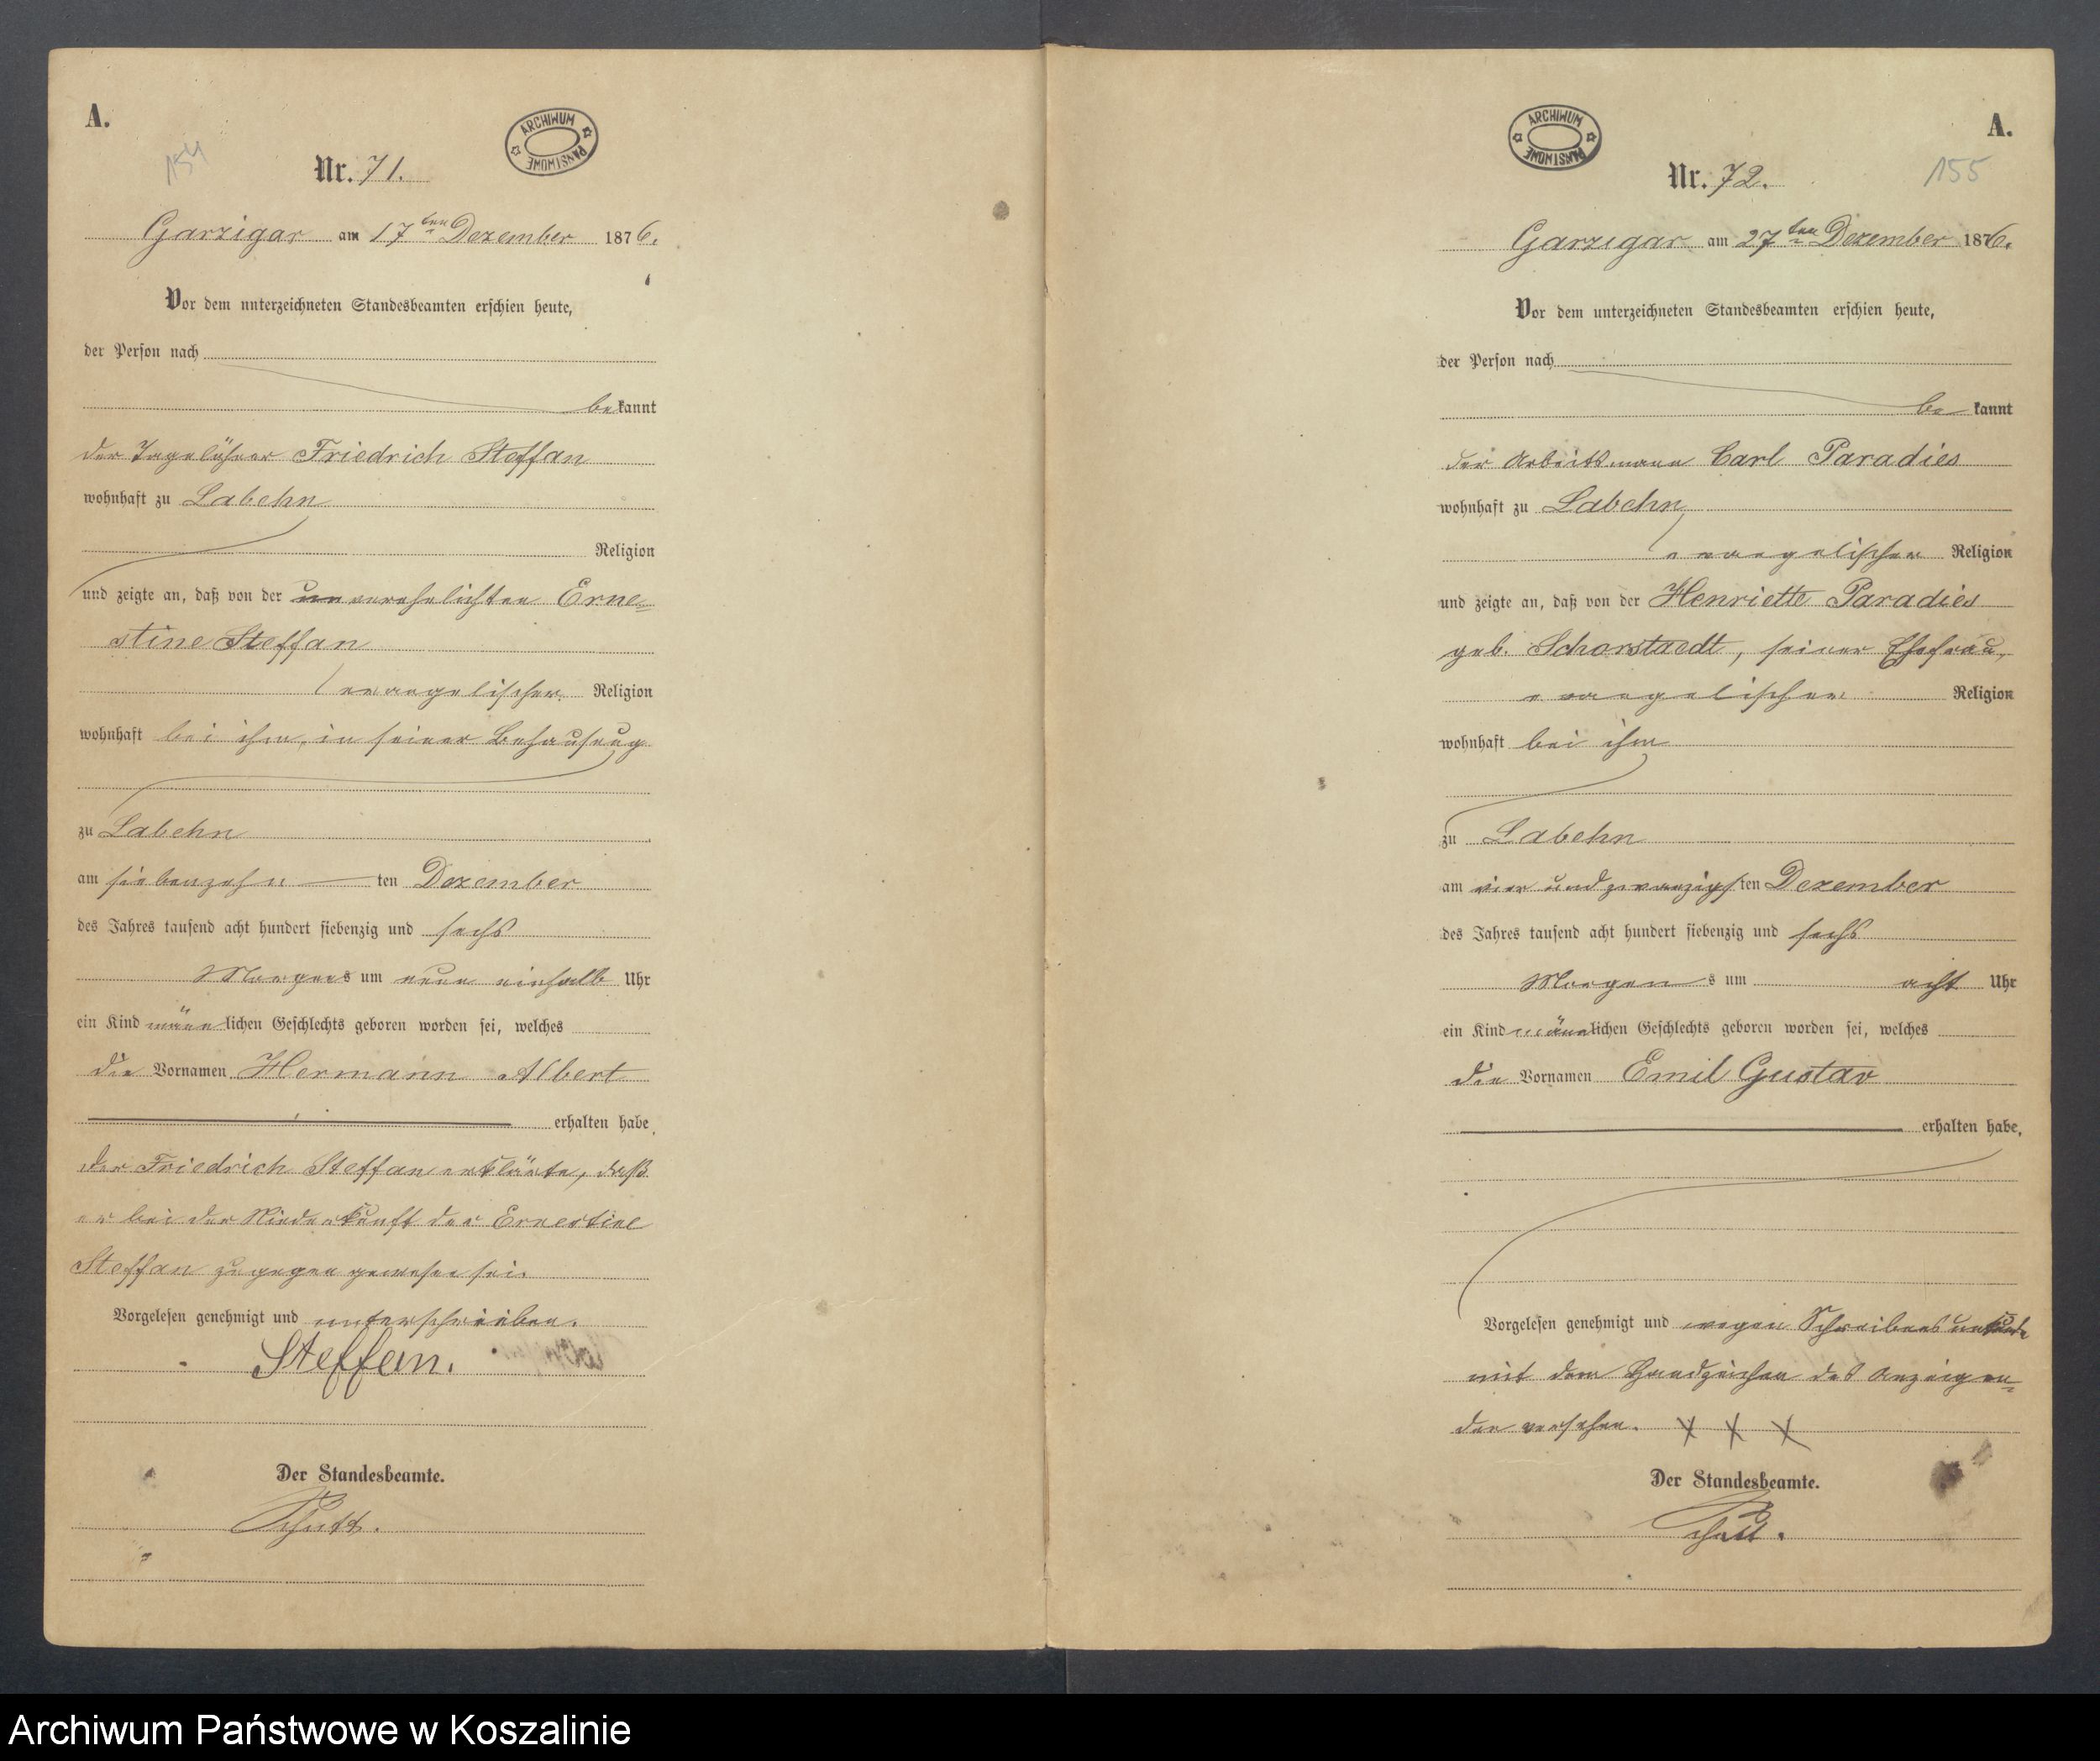 A.
154
Nr. 71.
ARCHIWUM PAŃSTWOWE
Garzigar am 17ten Dezember 1876.
Vor dem unterzeichneten Standesbeamten erschien heute,
der Person nach
bekannt
der Tagelöhner Friedrich Steffan
wohnhaft zu Labehn
Religion
und zeigte an, daß von der unverehelichten Erne=
stine Steffan
evangelischer Religion
wohnhaft bei ihm, in seiner Behausung
zu Labehn
am siebenzehnten Dezember
des Jahres tausend acht hundert siebenzig und sechs
Morgens um neun einhalb Uhr
ein Kind männlichen Geschlechts geboren worden sei, welches
die Vornamen Hermann Albert
erhalten habe,
der Friedrich Steffan erklärte, daß
er bei der Niederkunft der Ernestine
Steffan zugegen gewesen sei.
Vorgelesen genehmigt und unterschrieben.
Steffan.
Der Standesbeamte.
Schutt.
A.
155
ARCHIWUM PAŃSTWOWE
Nr. 72.
Garzigar am 27ten Dezember 1876.
Vor dem unterzeichneten Standesbeamten erschien heute,
der Person nach
bekannt
der Arbeitsmann Carl Paradies
wohnhaft zu Labehn
evangelischer Religion
und zeigte an, daß von der Henriette Paradies
geb. Schorstaedt, seiner Ehefrau,
evangelischer Religion
wohnhaft bei ihm
zu Labehn
am vier und zwanzigsten Dezember
des Jahres tausend acht hundert siebenzig und sechs
Morgens um acht Uhr
ein Kind männlichen Geschlechts geboren worden sei, welches
die Vornamen Emil Gustav
erhalten habe,
Vorgelesen genehmigt und wegen Schreibensunkunde
mit dem Handzeichen des Anzeigen=
den versehen. X X X
Der Standesbeamte.
Schutt.
Archiwum Państwowe w Koszalinie